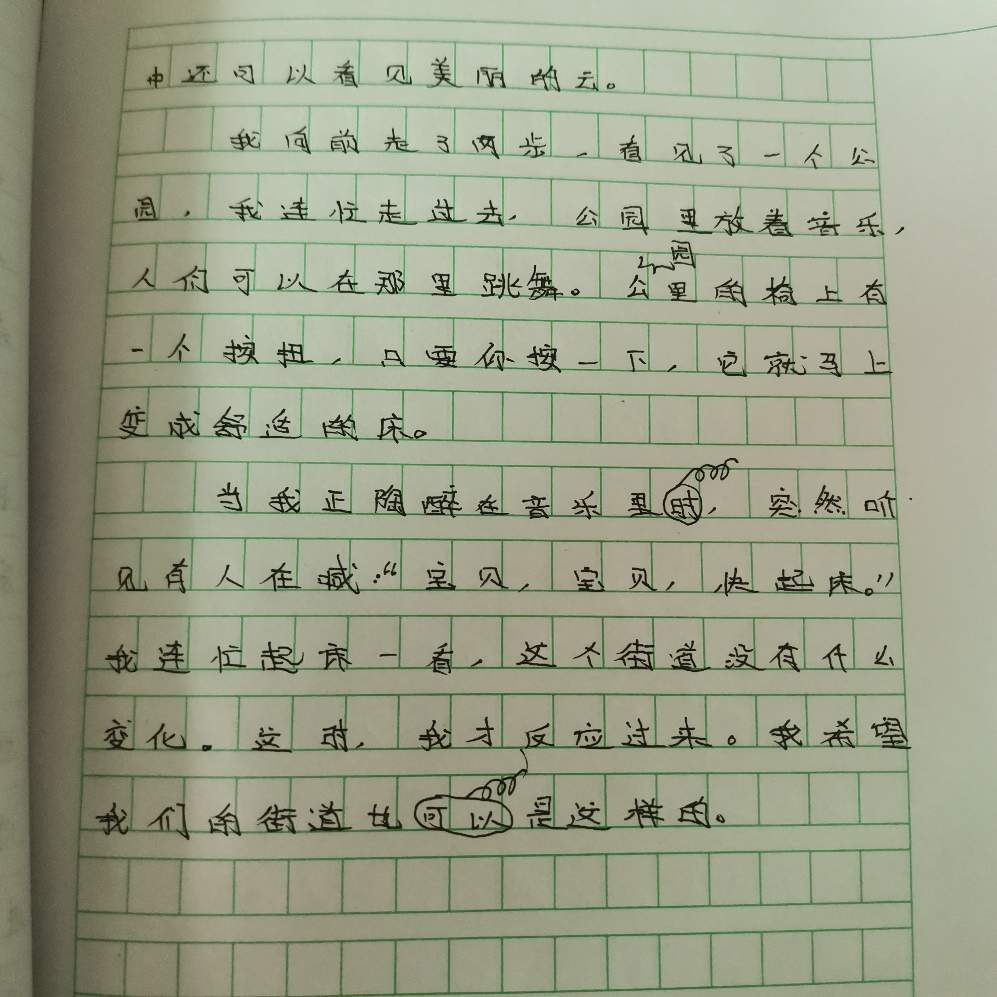 中还可以看见美丽的云。
我向前走了两步，看见了一个公
园，我连忙走过去，公园里放着音乐，
人们可以在那里跳舞。公园里的椅上有
一个按扭，只要你按一下，它就马上
变成舒适的床。
当我正陶醉在音乐里时，突然听
见有人在喊：“宝贝，宝贝，快起床。”
我连忙起床一看，这个街道没有什么
变化。这时，我才反应过来。我希望
我们的街道也可以是这样的。